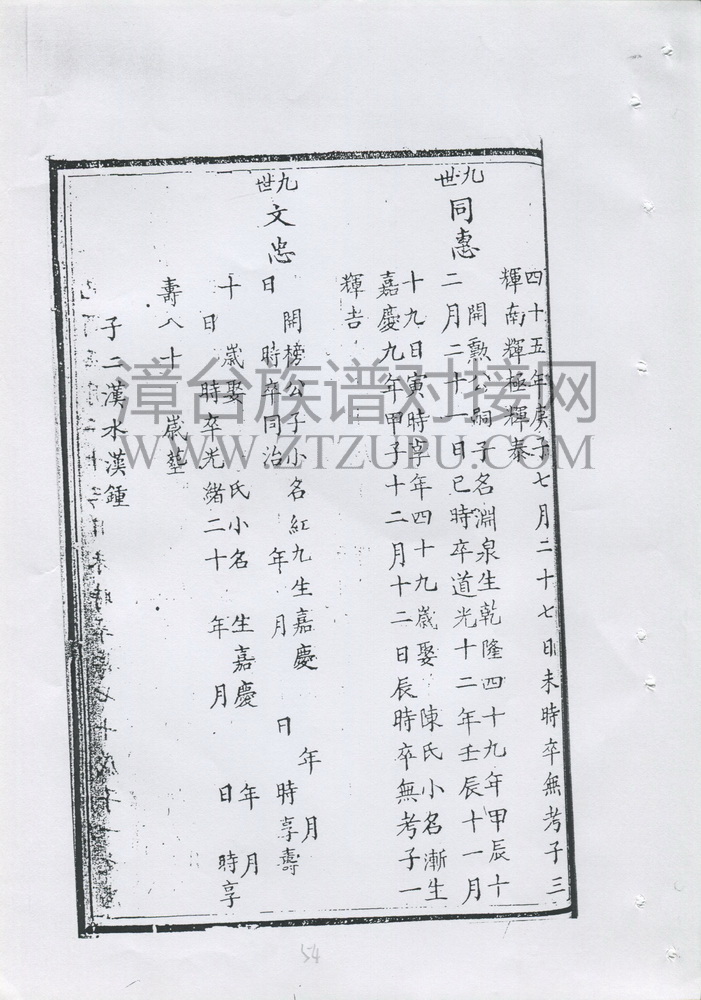 四十五年庚子七月二十七日未時卒無考子三
輝南輝極輝泰
九世
同惠
開勲公嗣子名淵泉生乾隆四十九年甲辰十
二月二十一日巳時卒道光十二年壬辰十一月
十九日寅時享年四十九歲娶陳氏小名漸生
嘉慶九年甲子十二月十二日辰時卒無考子一
輝吉
九世
文忠
開榜公子小名紅九生嘉慶 年 月
日 時卒同治 年 月 日 時享壽
十 歲娶 氏小名 生嘉慶 年 月
日 時卒光緒二十 年 月 日 時享
壽八十 歲塟
子二漢水漢鍾
漳台族谱对接网
WWW.ZTZUPU.COM
54